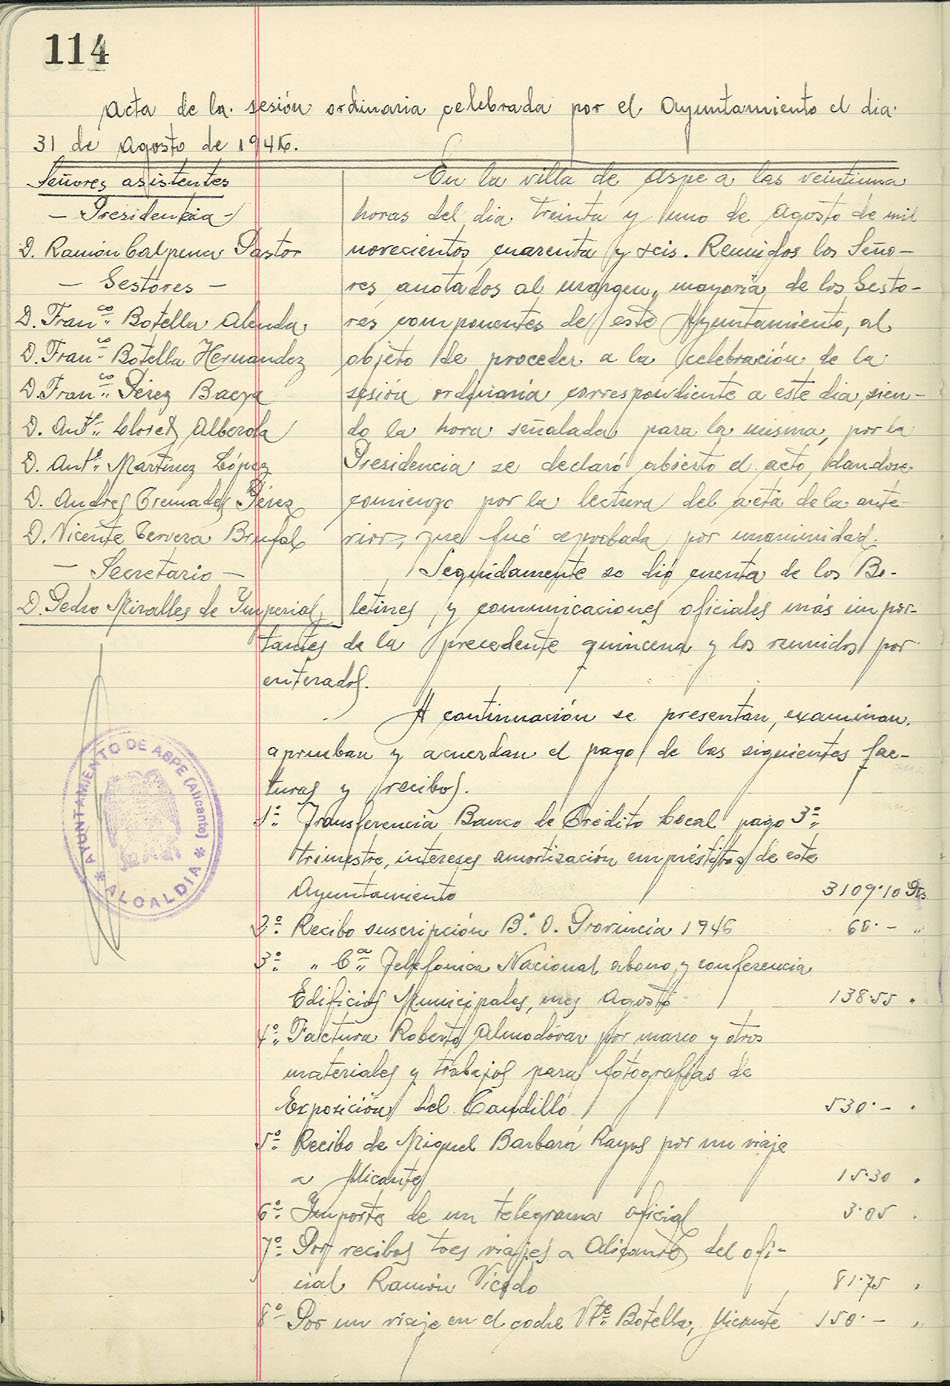 114
Acta de la sesión ordinaria celebrada por el Ayuntamiento el dia
31 de agosto de 1946.
Señores asistentes
- Presidencia -
D. Ramón Calpena Pastor
- Gestores -
D. Fran.co Botella Alenda
D. Fran.co Botella Hernandez
D. Fran.co Pérez Baeza
D. Ant.o Cloret Alberola
D. Ant.o Martínez López
D. Andres Cremades Pérez
D. Vicente Cervera Brufal
- Secretario -
D. Pedro Miralles de Ymperial
En la villa de Aspe a las veintiuna
horas del dia treinta y uno de agosto de mil
novecientos cuarenta y seis. Reunidos los Seño-
res anotados al margen, mayoria de los Gesto-
res componentes de este Ayuntamiento, al
objeto de proceder a la celebración de la
sesión ordinaria correspondiente a este dia, sien-
do la hora señalada para la misma, por la
Presidencia se declaró abierto el acto, dandose
comienzo por la lectura del acta de la ante-
rior, que fué aprobada por unanimidad.
Seguidamente se dio cuenta de los Bo-
letines y comunicaciones oficiales más impor-
tantes de la precedente quincena y los reunidos por
enterados.
A continuación se presentan, examinan,
aprueban y acuerdan el pago de las siguientes fac-
turas y recibos.
1º Transferencia Banco de Crédito Local pago 3º
trimestre, intereses amortización empréstitos de este
Ayuntamiento 3109'10 Pts
2º Recibo suscripción B. O. Provincia 1946 60'- "
3º " C.ª Telefonica Nacional abono y conferencia
Edificios Municipales, mes Agosto 138'55 "
4º Factura Roberto Almodóvar por marco y otros
materiales y trabajos para fotografias de
Exposición del Caudillo 530'- "
5º Recibo de Miguel Barbará Rayos por un viaje
a Alicante 15'30 "
6º Importe de un telegrama oficial 3'05 "
7º Por recibos tres viajes a Alicante, del ofi-
cial Ramón Vicedo 81'75 "
8º Por un viaje en el coche Vte. Botella, Alicante 150'- "
AYUNTAMIENTO DE ASPE (Alicante)
* ALCALDIA *